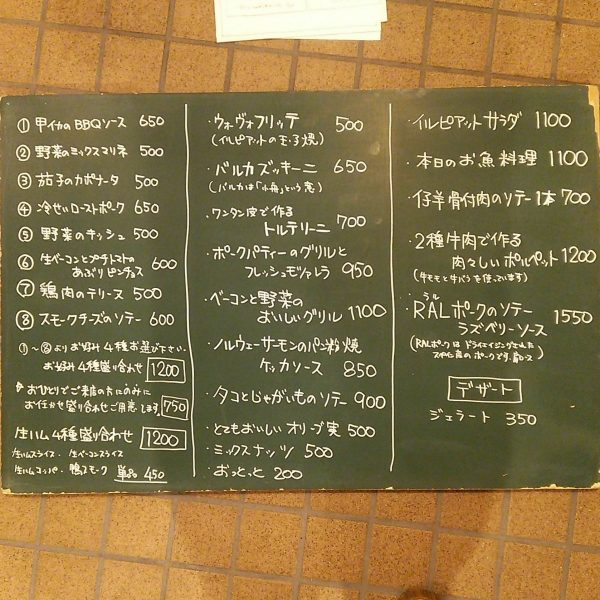 ① 甲イカのBBQソース 650
② 野菜のミックスマリネ 500
③ 茄子のカポナータ 500
④ 冷せいローストポーク 650
⑤ 野菜のキッシュ 500
⑥ 生ベーコンとプチトマトの
あぶりピンチョス 600
⑦ 鶏肉のテリーヌ 500
⑧ スモークチーズのソテー 600
①〜⑧よりお好み4種お選び下さい。
お好み4種盛り合わせ 1200
おひとりでご来店の方にのみに
お任せ盛り合わせご用意します 750
生ハム4種盛り合わせ 1200
生ハムスライス・生ベーコンスライス
生ハムコッパ・鴨スモーク 単品 450
・ウォヴォフリッテ 500
(イルピアットの玉子焼)
・バルカズッキーニ 650
(バルカは「小舟」という意)
・ワンタン皮で作る
トルテリーニ 700
・ポークパティーのグリルと
フレッシュモツァレラ 950
・ベーコンと野菜の
おいしいグリル 1100
・ノルウェーサーモンのパン粉焼
ケッカソース 850
・タコとじゃがいものソテー 900
・とてもおいしいオリーブ実 500
・ミックスナッツ 500
・おっとっと 200
・イルピアットサラダ 1100
・本日のお魚料理 1100
・仔羊骨付肉のソテー1本 700
・2種牛肉で作る
肉々しいポルペット 1200
(牛モモと牛バラを使っています)
ラル
・RALポークのソテー
ラズベリーソース 1550
(RALポークはドライエイジングされた
スペイン産のポークです。肩ロース)
デザート
ジェラート 350